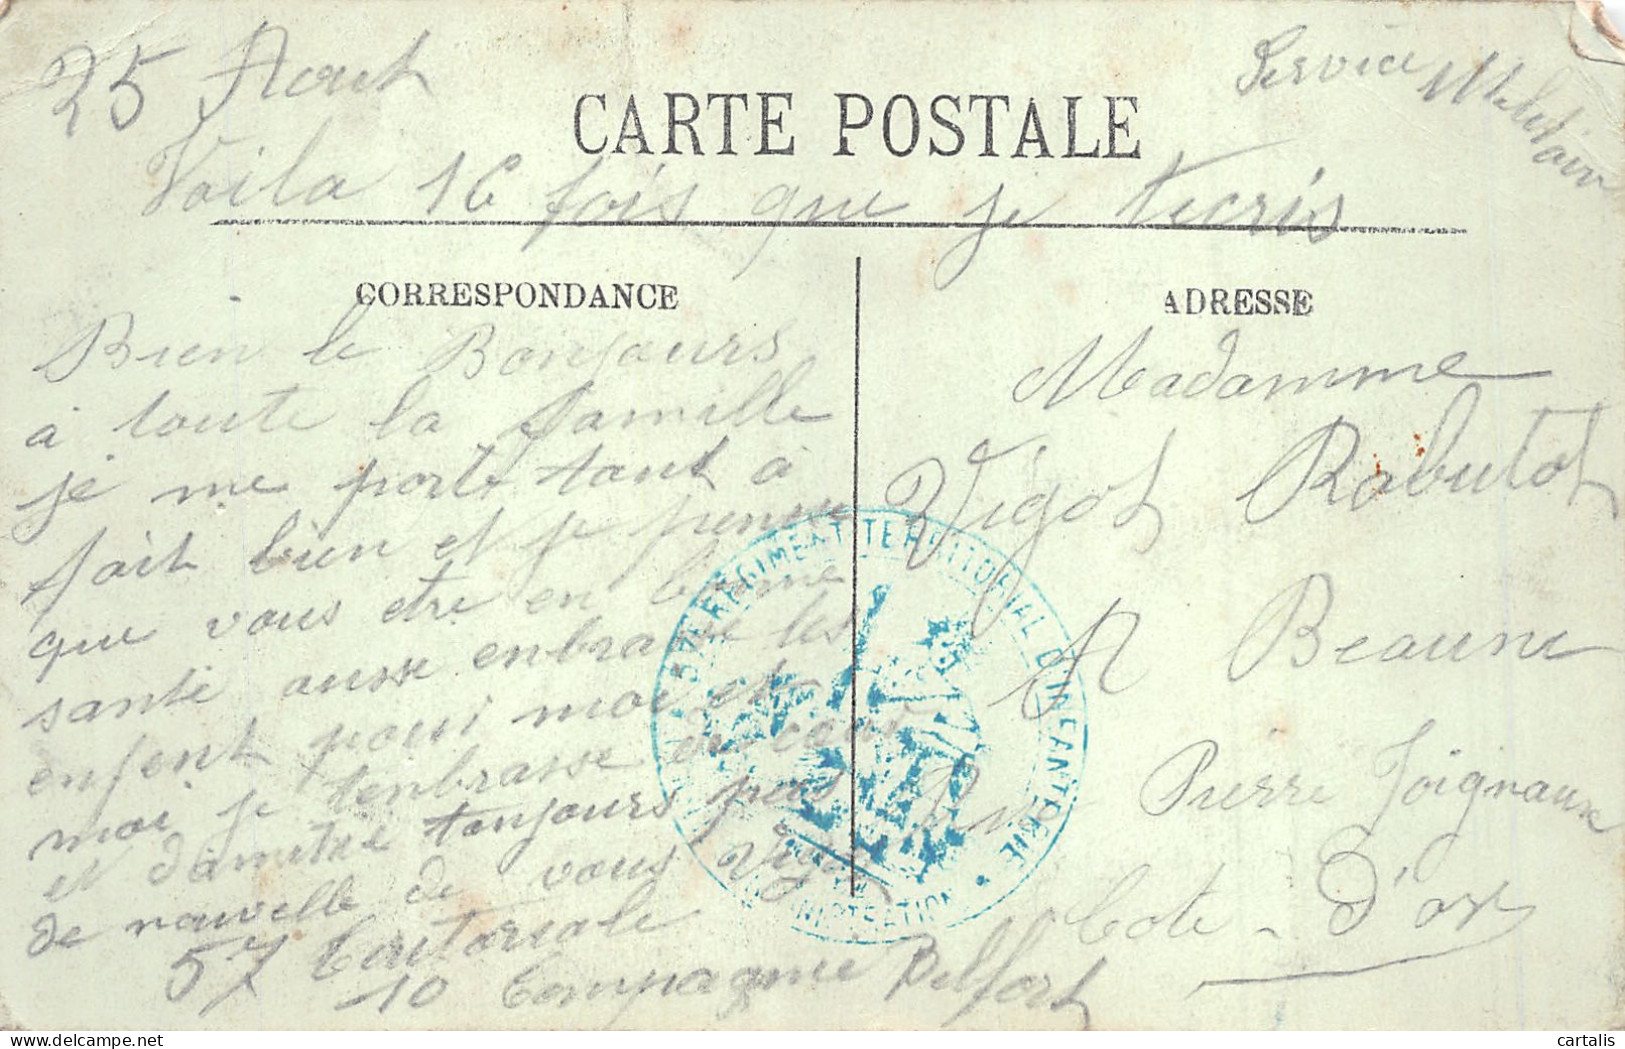 25 Aout
Service Militaire
CARTE POSTALE
Voila 16 fois que je tecris
CORRESPONDANCE
Bien le Bonjours
à toute la famille
je me porte tout à
fait bien et je pense
que vous etre en bonne
santé ausse enbrasse les
enfent pour moi et
moi je tenbrasse de cœur
et d'amitie toujours pas
de nouvelle de vous Vigot
57 Teritoriale
10 Compagnie Belfort
ADRESSE
Madamme
Vigot Rabutot
A Beaune
Rue Pierre Joigneaux
Cote-d'or
57E REGIMENT TERRITORIAL D'INFANTERIE
cartalis
delcampe.net